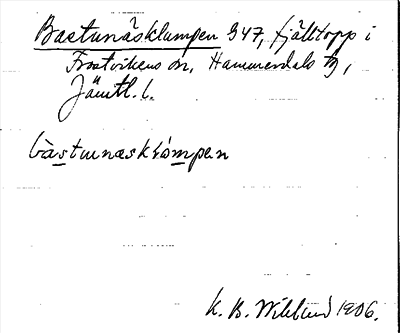 Bastunäsklumpen 947, fjälltopp i
Frostvikens sn, Hammerdals tg,
Jämtl. l.
bàstunæsklómpen
K. B. Wiklund 1906.